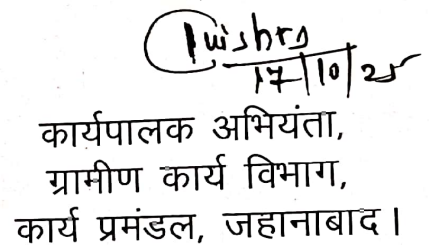 17/10/25
कार्यपालक अभियंता,
ग्रामीण कार्य विभाग,
कार्य प्रमंडल, जहानाबाद।